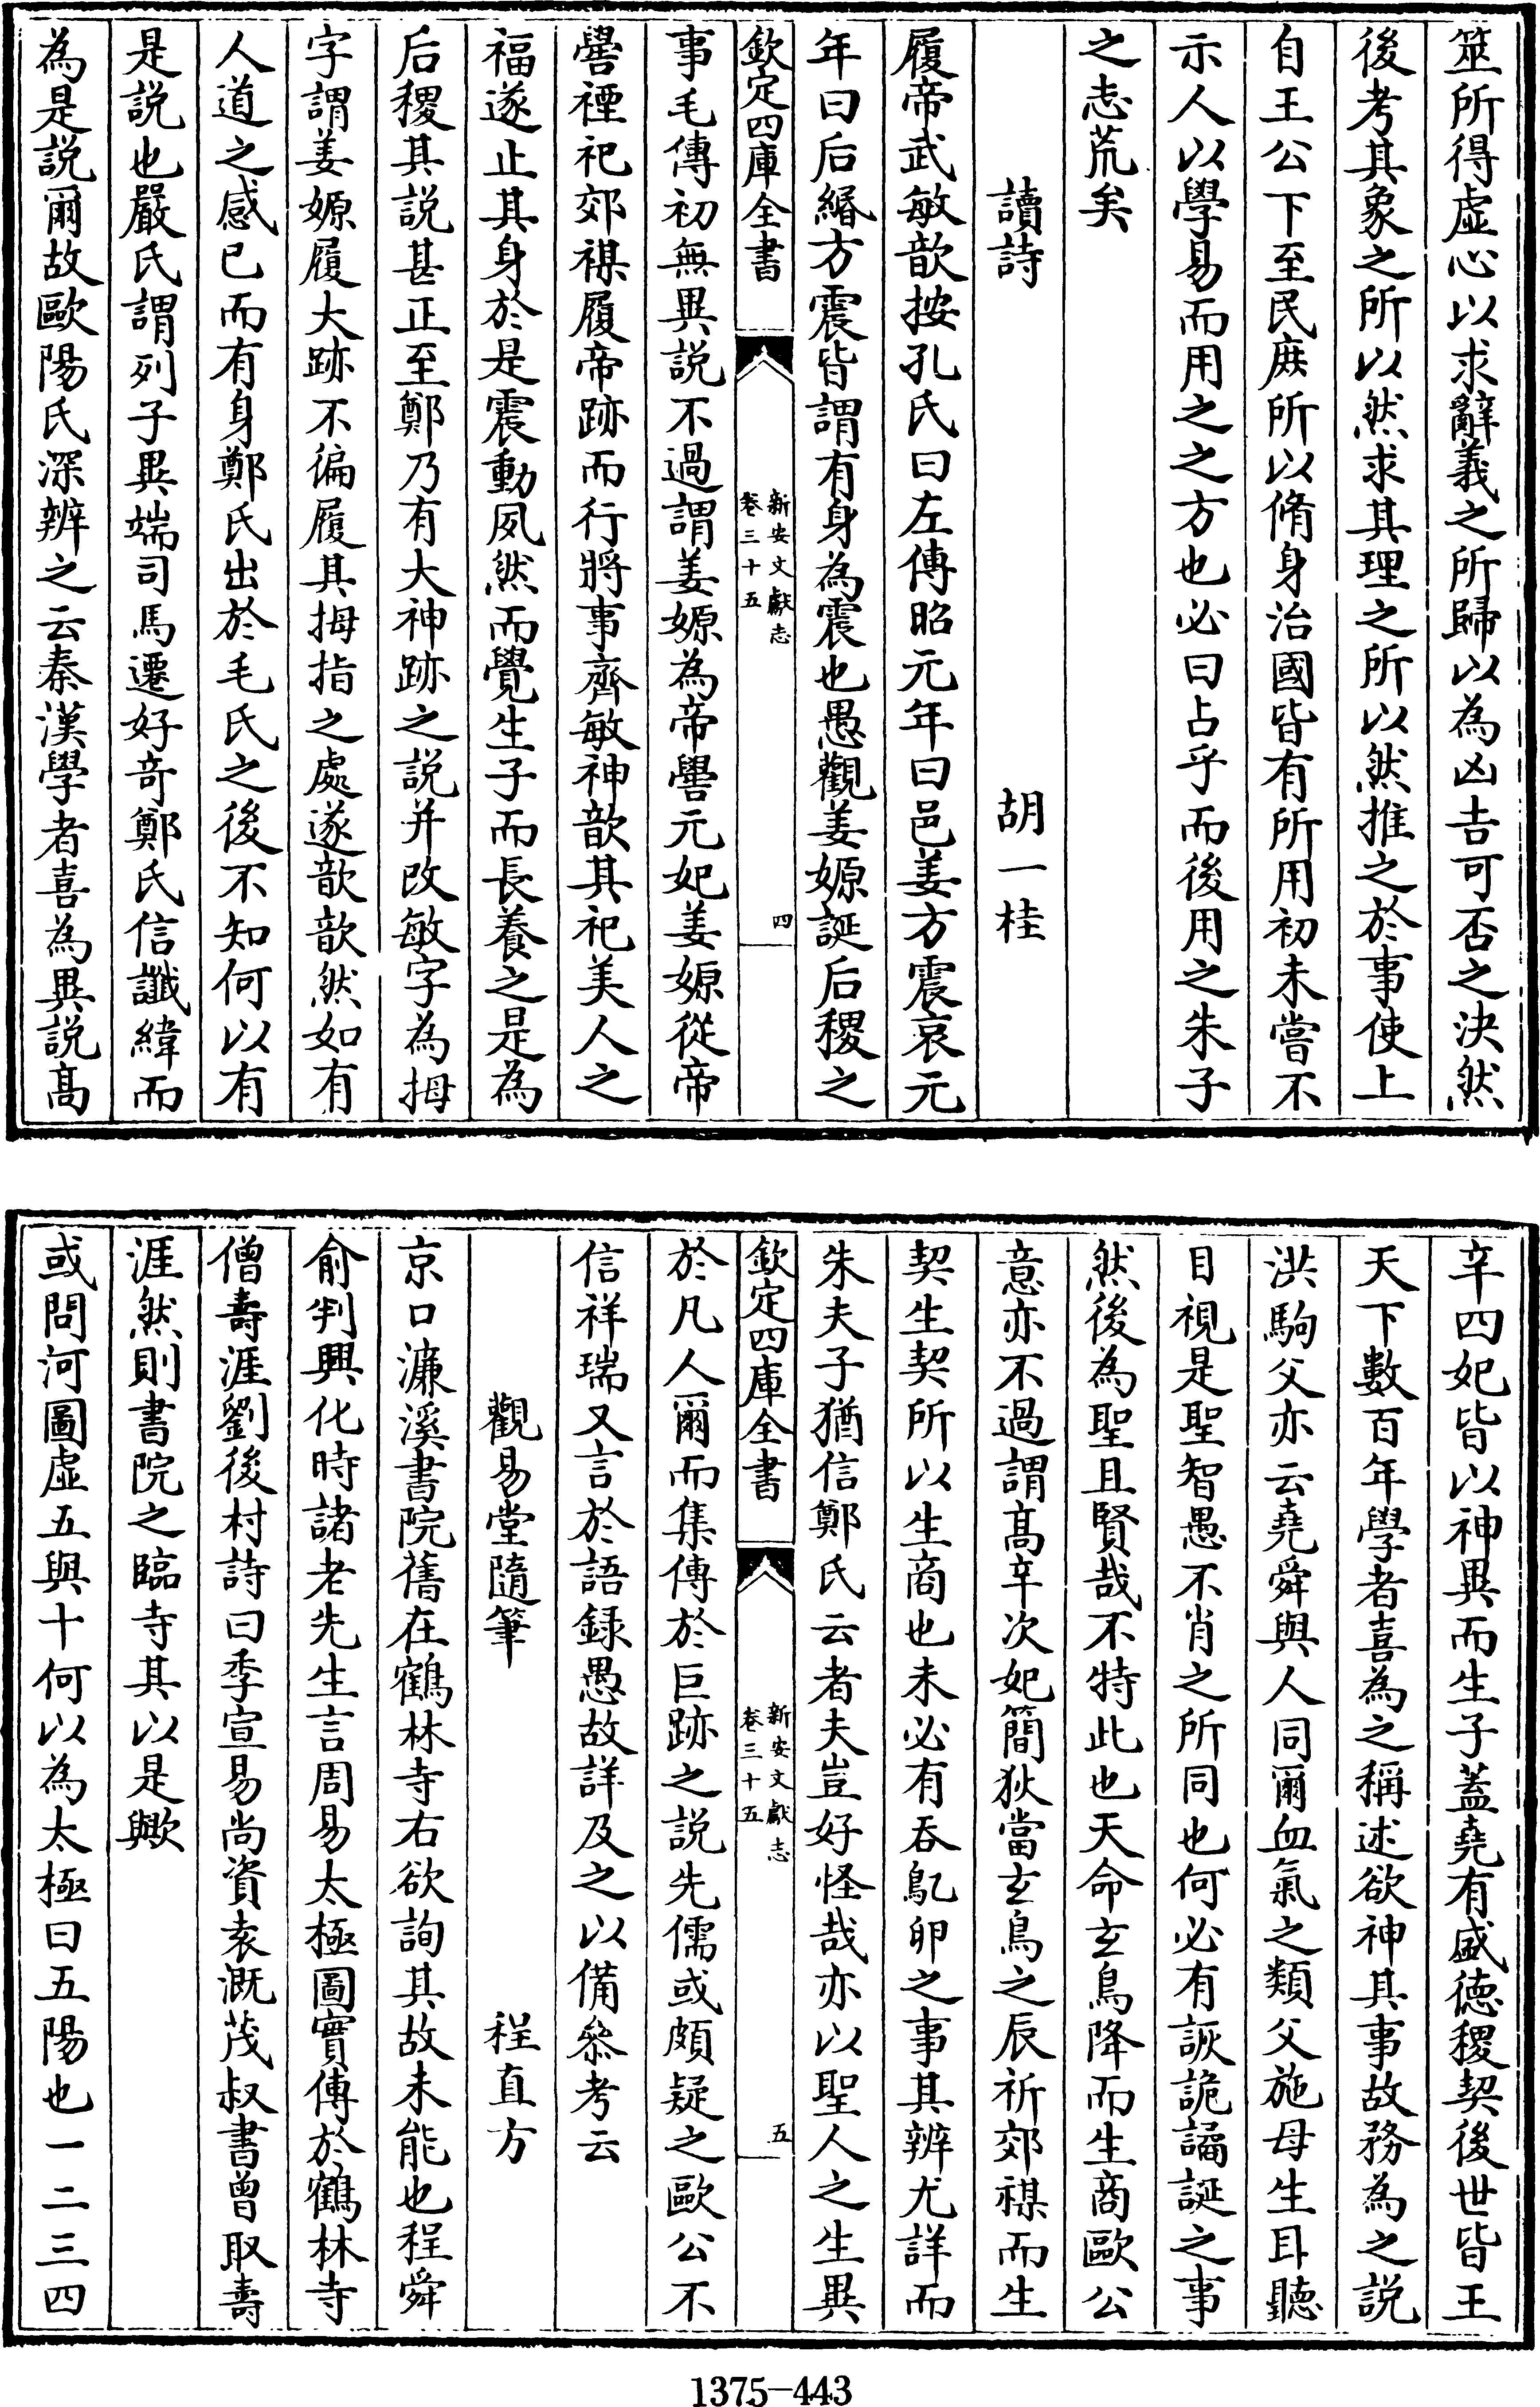 筮所得虛心以求辭義之所歸以為凶吉可否之決然
後考其象之所以然求其理之所以然推之於事使上
自王公下至民庶所以脩身治國皆有所用初未嘗不
示人以學易而用之之方也必曰占乎而後用之朱子
之志荒矣
讀詩 胡一桂
履帝武敏歆按孔氏曰左傳昭元年曰邑姜方震哀元
年曰后緡方震皆謂有身為震也愚觀姜嫄誕后稷之
欽定四庫全書 新安文獻志 卷三十五 四
事毛傳初無異說不過謂姜嫄為帝嚳元妃姜嫄從帝
嚳禋祀郊禖履帝跡而行將事齊敏神歆其祀美人之
福遂止其身於是震動夙然而覺生子而長養之是為
后稷其說甚正至鄭乃有大神跡之說并改敏字為拇
字謂姜嫄履大跡不徧履其拇指之處遂歆歆然如有
人道之感已而有身鄭氏出於毛氏之後不知何以有
是說也嚴氏謂列子異端司馬遷好奇鄭氏信讖緯而
為是說爾故歐陽氏深辨之云秦漢學者喜為異說高
辛四妃皆以神異而生子蓋堯有盛德稷契後世皆王
天下數百年學者喜為之稱述欲神其事故務為之說
洪駒父亦云堯舜與人同爾血氣之類父施母生耳聽
目視是聖智愚不肖之所同也何必有詼詭譎誕之事
然後為聖且賢哉不特此也天命玄鳥降而生商歐公
意亦不過謂高辛次妃簡狄當玄鳥之辰祈郊禖而生
契生契所以生商也未必有吞鳦卵之事其辨尤詳而
朱夫子猶信鄭氏云者夫豈好怪哉亦以聖人之生異
欽定四庫全書 新安文獻志 卷三十五 五
於凡人爾而集傳於巨跡之說先儒或頗疑之歐公不
信祥瑞又言於語錄愚故詳及之以備叅考云
觀易堂隨筆 程直方
京口濂溪書院舊在鶴林寺右欲詢其故未能也程舜
俞判興化時諸老先生言周易太極圖實傳於鶴林寺
僧壽涯劉後村詩曰季宣易尚資袁溉茂叔書曾取壽
涯然則書院之臨寺其以是歟
或問河圖虛五與十何以為太極曰五陽也一二三四
1375-443